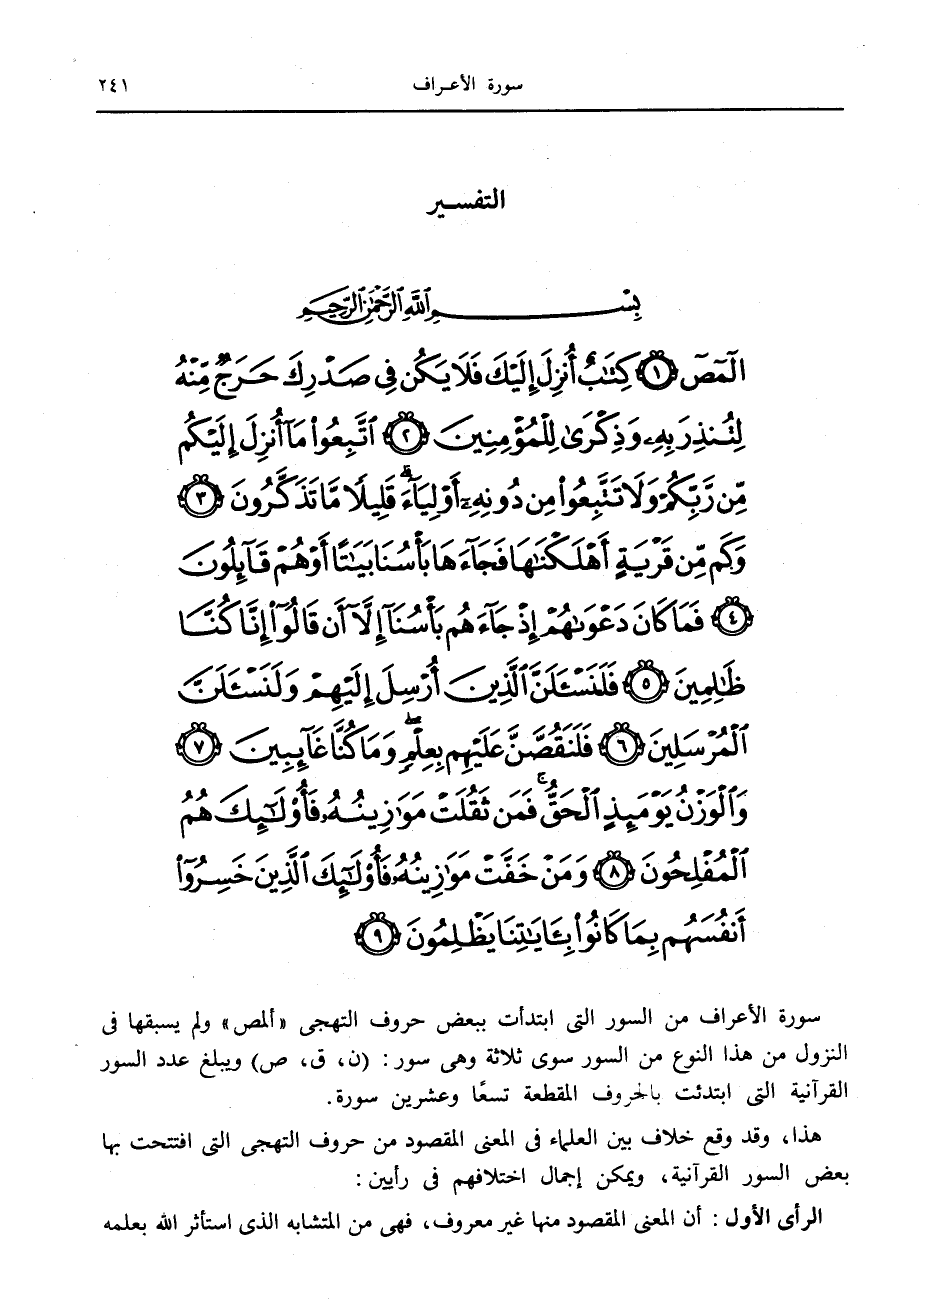 سورة الأعراف ٢٤١
التفسير
بِسْمِ ٱللَّهِ ٱلرَّحْمَٰنِ ٱلرَّحِيمِ
الٓمٓصٓ ﴿١﴾ كِتَٰبٌ أُنزِلَ إِلَيْكَ فَلَا يَكُن فِى صَدْرِكَ حَرَجٌ مِّنْهُ
لِتُنذِرَ بِهِۦ وَذِكْرَىٰ لِلْمُؤْمِنِينَ ﴿٢﴾ ٱتَّبِعُوا۟ مَآ أُنزِلَ إِلَيْكُم
مِّن رَّبِّكُمْ وَلَا تَتَّبِعُوا۟ مِن دُونِهِۦٓ أَوْلِيَآءَ ۗ قَلِيلًا مَّا تَذَكَّرُونَ ﴿٣﴾
وَكَم مِّن قَرْيَةٍ أَهْلَكْنَٰهَا فَجَآءَهَا بَأْسُنَا بَيَٰتًا أَوْ هُمْ قَآئِلُونَ
﴿٤﴾ فَمَا كَانَ دَعْوَىٰهُمْ إِذْ جَآءَهُم بَأْسُنَآ إِلَّآ أَن قَالُوٓا۟ إِنَّا كُنَّا
ظَٰلِمِينَ ﴿٥﴾ فَلَنَسْـَٔلَنَّ ٱلَّذِينَ أُرْسِلَ إِلَيْهِمْ وَلَنَسْـَٔلَنَّ
ٱلْمُرْسَلِينَ ﴿٦﴾ فَلَنَقُصَّنَّ عَلَيْهِم بِعِلْمٍ ۖ وَمَا كُنَّا غَآئِبِينَ ﴿٧﴾
وَٱلْوَزْنُ يَوْمَئِذٍ ٱلْحَقُّ ۚ فَمَن ثَقُلَتْ مَوَٰزِينُهُۥ فَأُو۟لَٰٓئِكَ هُمُ
ٱلْمُفْلِحُونَ ﴿٨﴾ وَمَنْ خَفَّتْ مَوَٰزِينُهُۥ فَأُو۟لَٰٓئِكَ ٱلَّذِينَ خَسِرُوٓا۟
أَنفُسَهُم بِمَا كَانُوا۟ بِـَٔايَٰتِنَا يَظْلِمُونَ ﴿٩﴾
سورة الأعراف من السور التى ابتدأت ببعض حروف التهجى «ألمص» ولم يسبقها فى
النزول من هذا النوع من السور سوى ثلاثة وهى سور: (ن، ق، ص) ويبلغ عدد السور
القرآنية التى ابتدئت بالحروف المقطعة تسعًا وعشرين سورة.
هذا، وقد وقع خلاف بين العلماء فى المعنى المقصود من حروف التهجى التى افتتحت بها
بعض السور القرآنية، ويمكن إجمال اختلافهم فى رأيين:
الرأى الأول: أن المعنى المقصود منها غير معروف، فهى من المتشابه الذى استأثر الله بعلمه